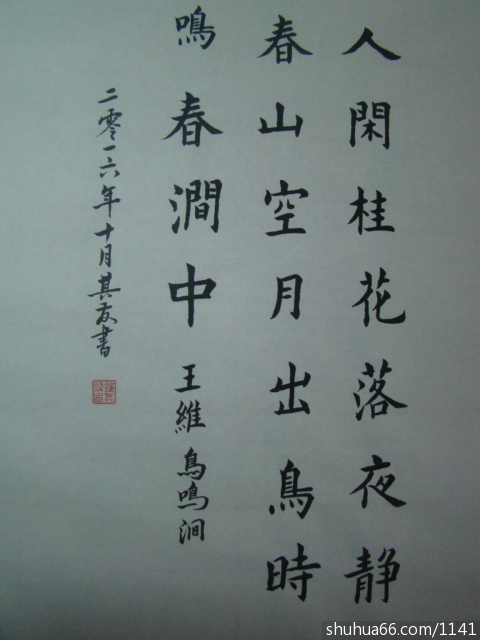 人閑桂花落夜静
春山空月出鳥時
鳴春澗中王維鳥鳴涧
二零一六年十月其友書
shuhua66.com/1141